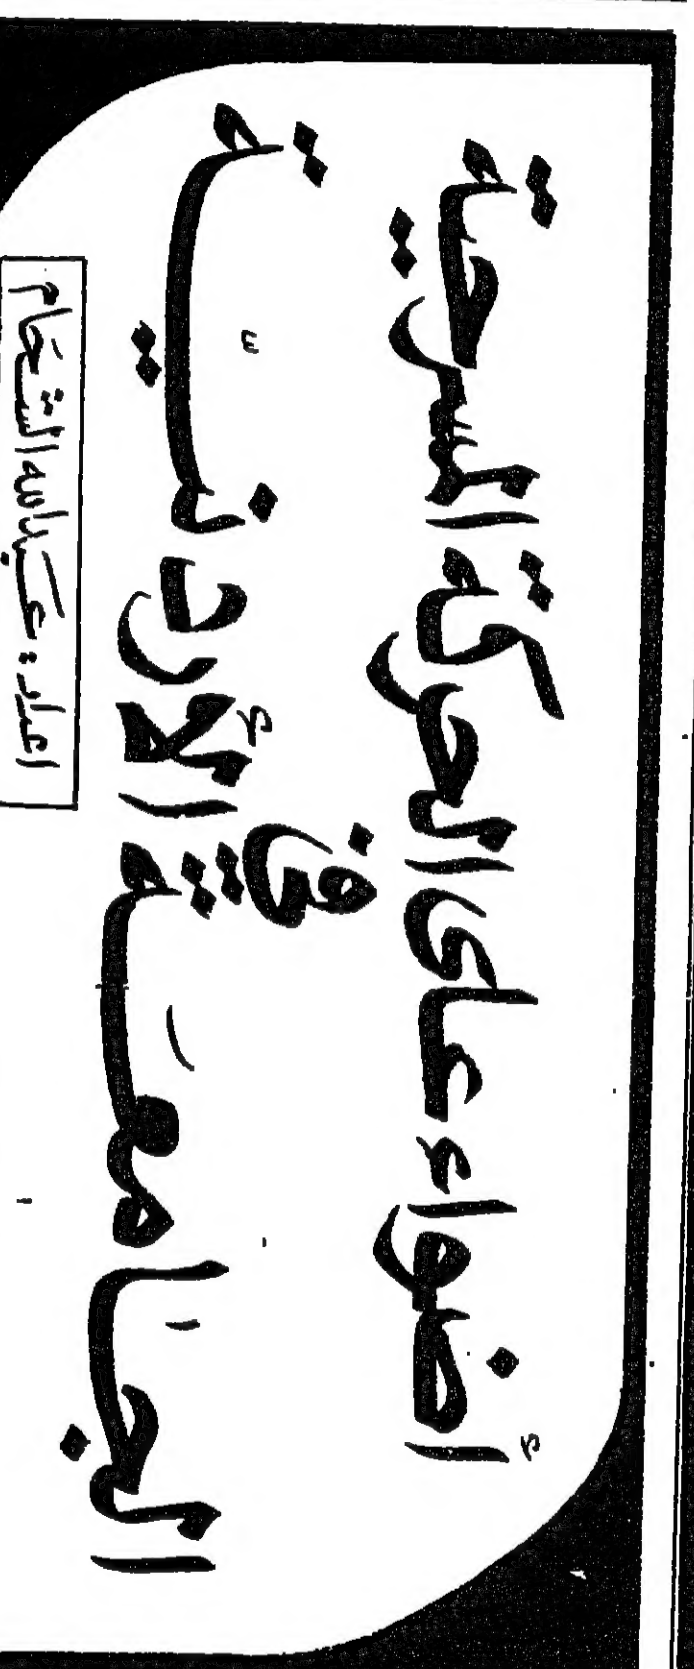 أضواء على الحركة المسرحية
في
الجامعة الأردنية
اعداد: عبدالله الشحام